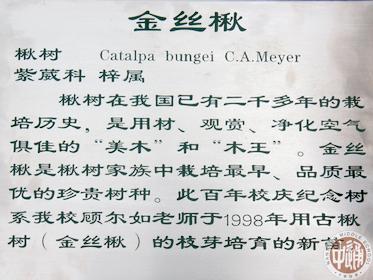 金丝楸
楸树 Catalpa bungei C.A.Meyer
紫葳科 梓属
楸树在我国已有二千多年的栽
培历史，是用材、观赏、净化空气
俱佳的“美木”和“木王”。金丝
楸是楸树家族中栽培最早、品质最
优的珍贵树种。此百年校庆纪念树
系我校顾尔如老师于1998年用古楸
树（金丝楸）的枝芽培育的新苗